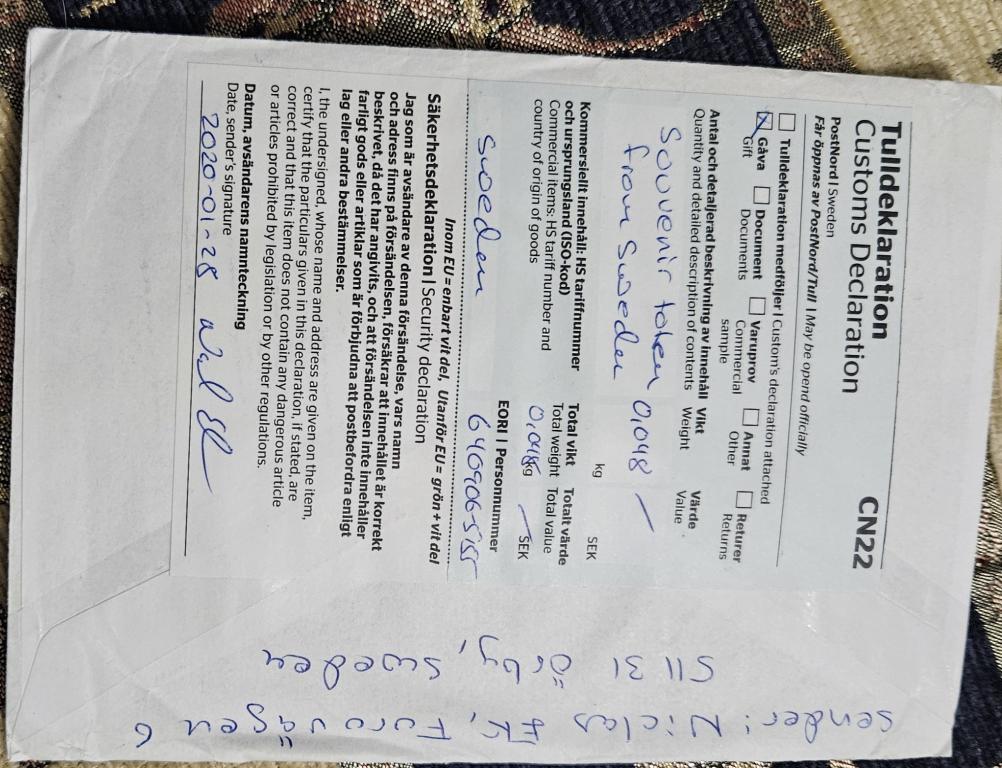 Tulldeklaration
Customs Declaration CN22
PostNord | Sweden
Får öppnas av PostNord/Tull | May be opend officially
Tulldeklaration medföljer | Custom's declaration attached
Gåva Document Varuprov Annat Returer
Gift Documents Commercial sample Other Returns
Antal och detaljerad beskrivning av innehåll Vikt Värde
Quantity and detailed description of contents Weight Value
Souvenir token 0,048 —
from Sweden
kg SEK
Kommersiellt innehåll: HS tariffnummer Total vikt Totalt värde
och ursprungsland (ISO-kod) Total weight Total value
Commercial items: HS tariff number and 0,048 kg — SEK
country of origin of goods
EORI | Personnummer
Sweden 640906-5155
Inom EU = enbart vit del, Utanför EU = grön + vit del
Säkerhetsdeklaration | Security declaration
Jag som är avsändare av denna försändelse, vars namn
och adress finns på försändelsen, försäkrar att innehållet är korrekt
beskrivet, då det har angivits, och att försändelsen inte innehåller
farligt gods eller artiklar som är förbjudna att postbefordra enligt
lag eller andra bestämmelser.
I, the undersigned, whose name and address are given on the item,
certify that the particulars given in this declaration, if stated, are
correct and that this item does not contain any dangerous article
or articles prohibited by legislation or by other regulations.
Datum, avsändarens namnteckning
Date, sender's signature
2020-01-28
sender: Niclas Ek, Furuvägen 6
511 31 Örby, Sweden